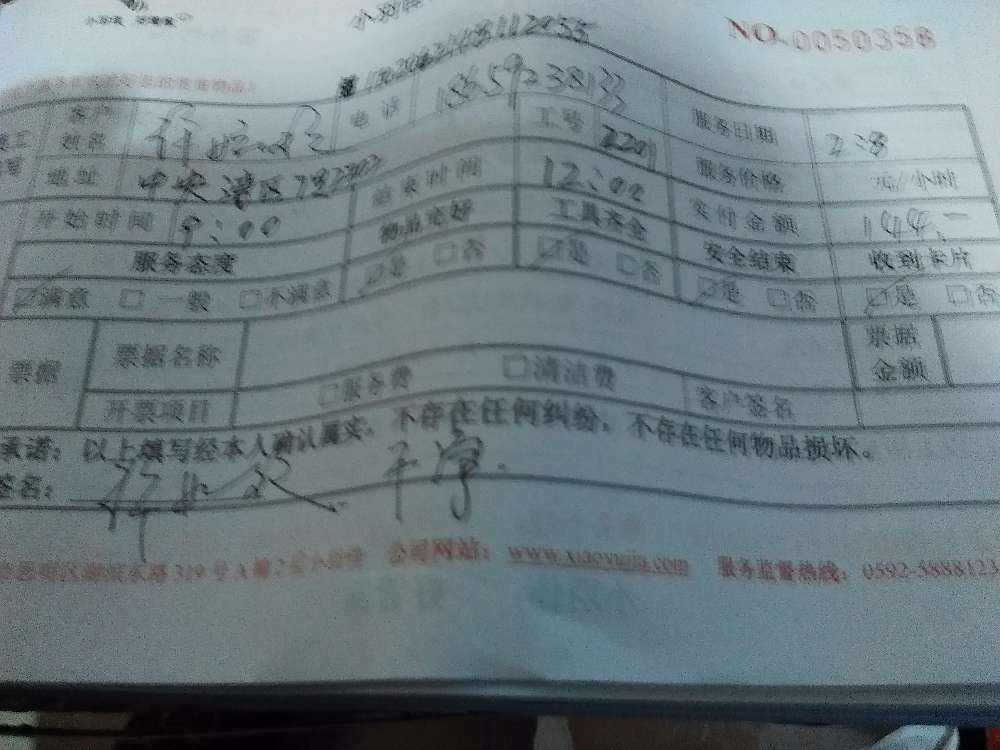 NO.0050358
客户姓名 电话 18659238133 服务日期 2:8
工号 2201
地址 中央湾区 服务价格 元/小时
开始时间 9:00 结束时间 12:00 实付金额 144.-
服务态度 物品完好 工具齐全 安全结束 收到卡片
☑满意 □一般 □不满意 ☑是 □否 ☑是 □否 ☑是 □否 ☑是 □否
票据 票据名称 票据金额
开票项目 □服务费 □清洁费 客户签名
承诺：以上填写经本人确认属实，不存在任何纠纷，不存在任何物品损坏。
签名： 干净.
思明区湖滨东路319号A幢2层 公司网站：www.xiaoyujia.com 服务监督热线：0592-5888123